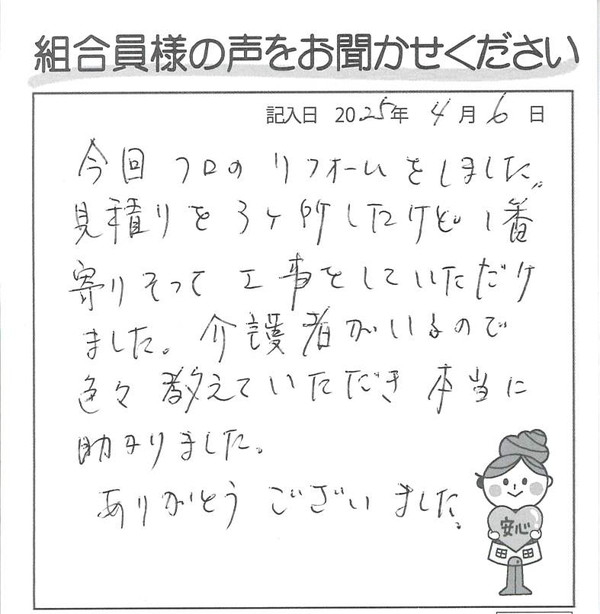 組合員様の声をお聞かせください
記入日 2025年 4月 6日
今回 フロの リフォームをしました。
見積りを 3ヶ所したけど 1番
寄りそって 工事をしていただけ
ました。介護者がいるので
色々 教えていただき 本当に
助かりました。
ありがとう ございました。
安心